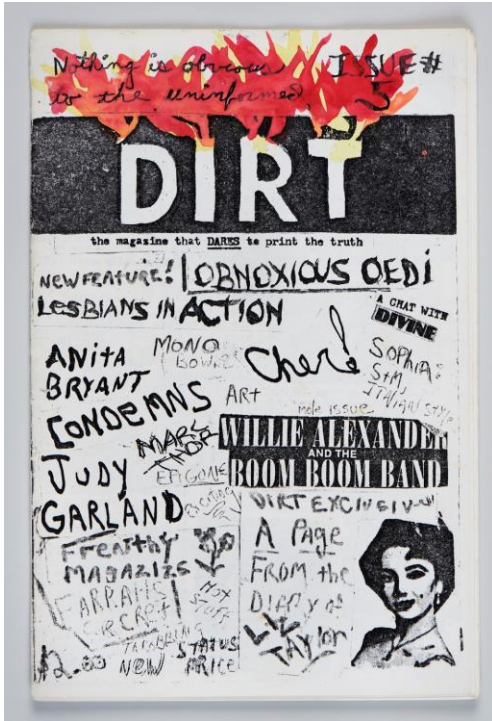 Nothing is obvious
to the uninformed.
ISSUE #
5
DIRT
the magazine that DARES to print the truth
NEW FEATURE! OBNOXIOUS OEDI
LESBIANS IN ACTION
A CHAT WITH
DIVINE
ANITA
BRYANT
CONDEMNS
JUDY
GARLAND
MONO
Cher!
SOPHIA:
S+M
ITALIAN STYLE
ART
issue
MARS
THOR
EPIGONE
WILLIE ALEXANDER
AND THE
BOOM BOOM BAND
EXCITING
DIRT EXCLUSIVE
A PAGE
FROM the
DIARY of
LIZ
TAYLOR
FRENTHY
MAGAZIZE
FARRAH'S
SECRET
HOT
STUFF
STATUS
$2.00 NEW PRICE